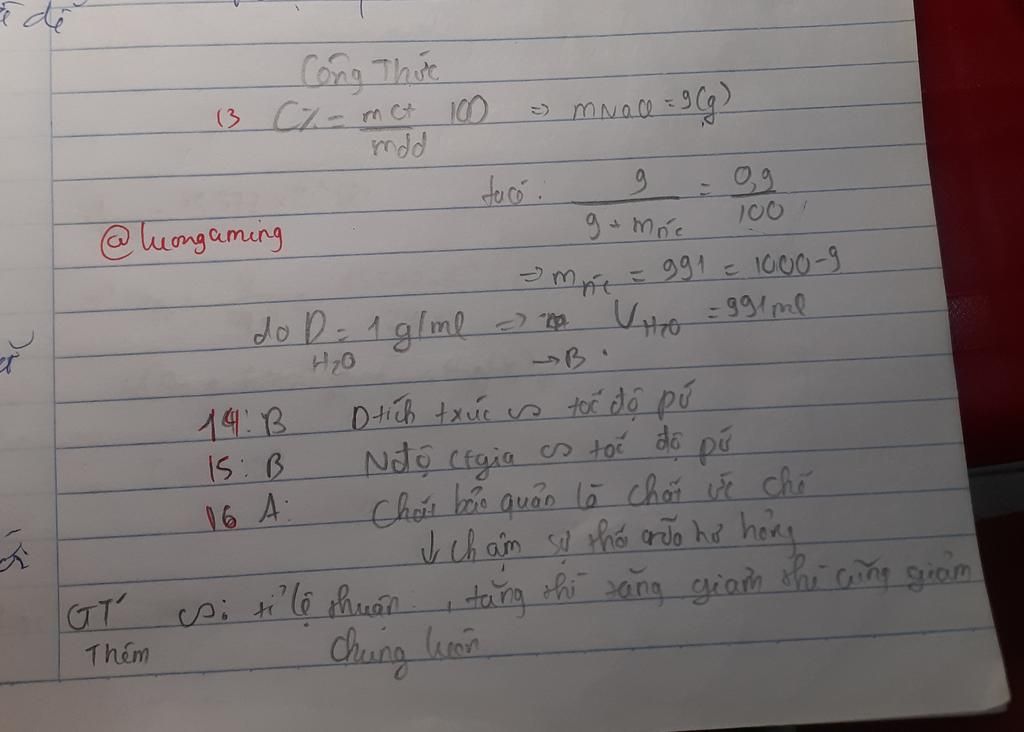 dễ
Công Thức
13 C% = mct/mdd 100 => mNaCl = 9(g)
ta có: 9/(9 + mnc) = 0,9/100
@luongaming
=> mnc = 991 = 1000-9
do D H2O = 1 g/ml => V H2O = 991ml
→ B.
14: B Dtích txúc ∽ tốc độ pứ
15: B Nđộ ctgia ∽ tốc độ pứ
16 A: Chất bảo quản là chất ức chế
↓ chậm sự thối rữa hư hỏng
GT ∽: tỉ lệ thuận, tăng thì tăng giảm thì cũng giảm
Thêm chung luôn